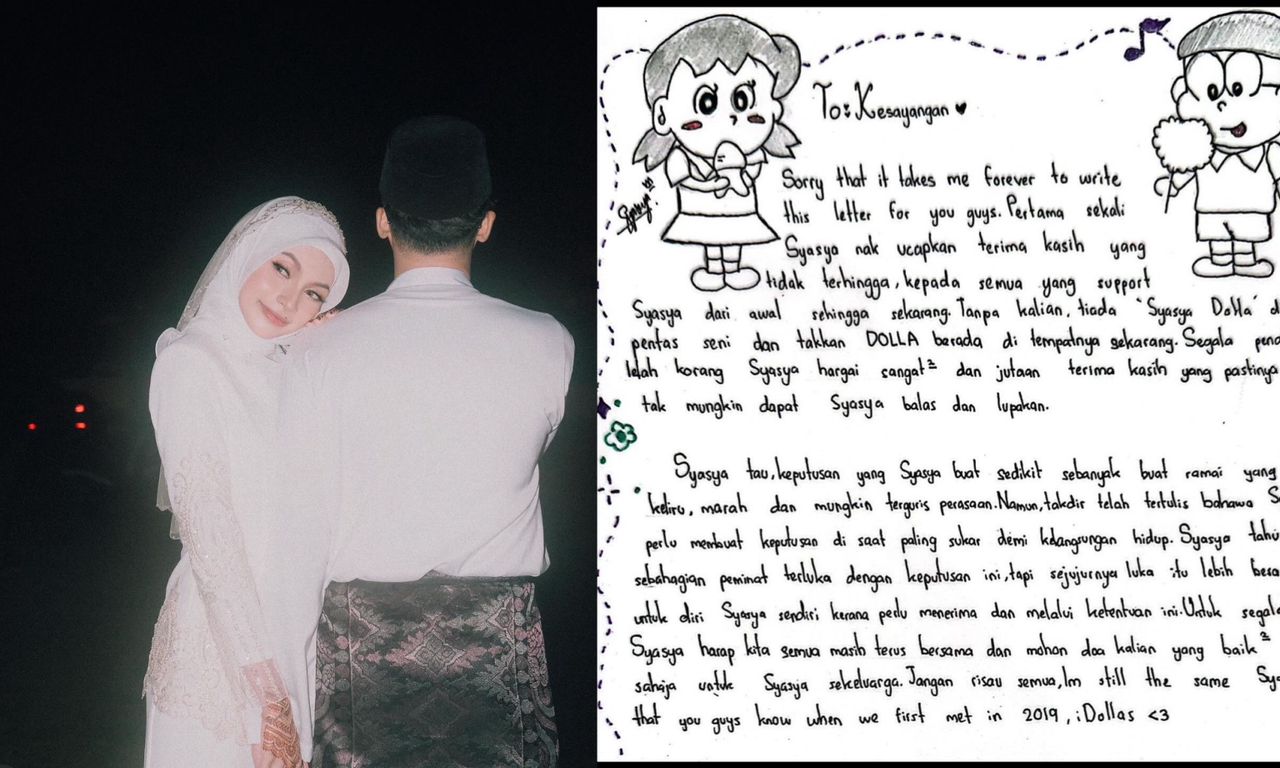 To: Kesayangan ♥
Sorry that it takes me forever to write
this letter for you guys. Pertama sekali
Syasya nak ucapkan terima kasih yang
tidak terhingga, kepada semua yang support
Syasya dari awal sehingga sekarang. Tanpa kalian, tiada "Syasya Dolla" d
pentas seni dan takkan DOLLA berada di tempatnya sekarang. Segala pena
lelah korang Syasya hargai sangat² dan jutaan terima kasih yang pastinya
tak mungkin dapat Syasya balas dan lupakan.
Syasya tau, keputusan yang Syasya buat sedikit sebanyak buat ramai yang
keliru, marah dan mungkin terguris perasaan. Namun, takdir telah tertulis bahawa S
perlu membuat keputusan di saat paling sukar demi kelangsungan hidup. Syasya tahu
sebahagian peminat terluka dengan keputusan ini, tapi sejujurnya luka itu lebih besa
untuk diri Syasya sendiri kerana perlu menerima dan melalui ketentuan ini. Untuk segala
Syasya harap kita semua masih terus bersama dan mohon doa kalian yang baik²
sahaja untuk Syasya sekeluarga. Jangan risau semua, Im still the same Sya
that you guys know when we first met in 2019, iDollas <3